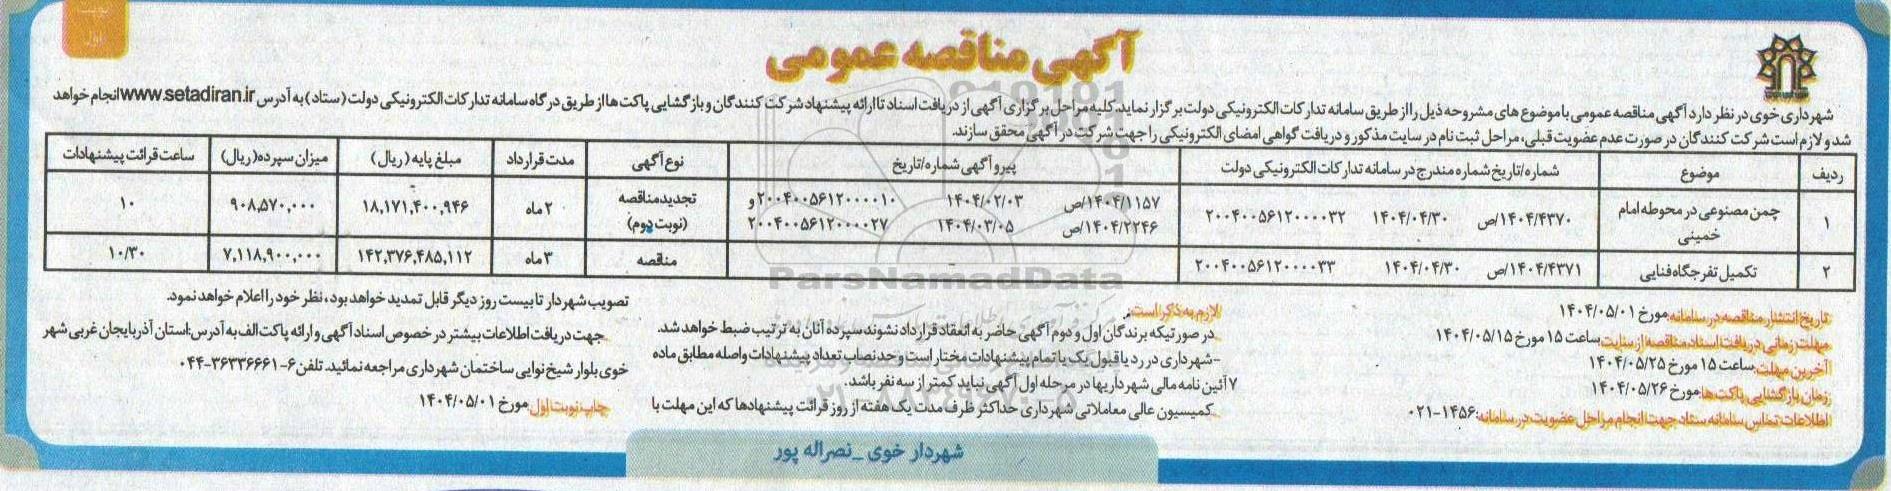 نوبت اول
آگهی مناقصه عمومی
شهرداری خوی در نظر دارد آگهی مناقصه عمومی با موضوع های مشروحه ذیل را از طریق سامانه تدارکات الکترونیکی دولت برگزار نماید. کلیه مراحل برگزاری آگهی از دریافت اسناد تا ارائه پیشنهاد شرکت کنندگان و بازگشایی پاکت ها از طریق درگاه سامانه تدارکات الکترونیکی دولت (ستاد) به آدرس www.setadiran.ir انجام خواهد
شد و لازم است شرکت کنندگان در صورت عدم عضویت قبلی، مراحل ثبت نام در سایت مذکور و دریافت گواهی امضای الکترونیکی را جهت شرکت در آگهی محقق سازند.
ردیف موضوع شماره/تاریخ شماره مندرج در سامانه تدارکات الکترونیکی دولت پیرو آگهی شماره/تاریخ نوع آگهی مدت قرارداد مبلغ پایه (ریال) میزان سپرده(ریال) ساعت قرائت پیشنهادات
۱ چمن مصنوعی در محوطه امام خمینی ۱۴۰۴/۴۳۷۰/ص ۱۴۰۴/۰۴/۳۰ ۲۰۰۴۰۰۵۶۱۲۰۰۰۰۳۲ ۱۴۰۴/۱۱۵۷/ص ۱۴۰۴/۰۲/۰۳ ۲۰۰۴۰۰۵۶۱۲۰۰۰۰۱۰ و
۱۴۰۴/۲۲۴۶/ص ۱۴۰۴/۰۳/۰۵ ۲۰۰۴۰۰۵۶۱۲۰۰۰۰۲۷ تجدیدمناقصه (نوبت دوم) ۲ ماه ۱۸,۱۷۱,۴۰۰,۹۴۶ ۹۰۸,۵۷۰,۰۰۰ ۱۰
۲ تکمیل تفرجگاه فنایی ۱۴۰۴/۴۳۷۱/ص ۱۴۰۴/۰۴/۳۰ ۲۰۰۴۰۰۵۶۱۲۰۰۰۰۳۳ - مناقصه ۳ ماه ۱۴۲,۳۷۶,۴۸۵,۱۱۲ ۷,۱۱۸,۹۰۰,۰۰۰ ۱۰/۳۰
تاریخ انتشار مناقصه در سامانه: مورخ ۱۴۰۴/۰۵/۰۱
مهلت زمانی دریافت اسناد مناقصه از سایت: ساعت ۱۵ مورخ ۱۴۰۴/۰۵/۱۵
آخرین مهلت: ساعت ۱۵ مورخ ۱۴۰۴/۰۵/۲۵
زمان بازگشایی پاکت ها: مورخ ۱۴۰۴/۰۵/۲۶
اطلاعات تماس سامانه ستاد جهت انجام مراحل عضویت در سامانه: ۱۴۵۶-۰۲۱
لازم به ذکر است:
در صورتیکه برندگان اول و دوم آگهی حاضر به انعقاد قرارداد نشوند سپرده آنان به ترتیب ضبط خواهد شد.
-شهرداری در رد یا قبول یک یا تمام پیشنهادات مختار است و حدنصاب تعداد پیشنهادات واصله مطابق ماده
۷ آئین نامه مالی شهرداریها در مرحله اول آگهی نباید کمتر از سه نفر باشد.
-کمیسیون عالی معاملاتی شهرداری حداکثر ظرف مدت یک هفته از روز قرائت پیشنهادها که این مهلت با
تصویب شهردار تا بیست روز دیگر قابل تمدید خواهد بود، نظر خود را اعلام خواهد نمود.
جهت دریافت اطلاعات بیشتر در خصوص اسناد آگهی و ارائه پاکت الف به آدرس: استان آذربایجان غربی شهر
خوی بلوار شیخ نوایی ساختمان شهرداری مراجعه نمائید. تلفن ۶-۳۶۳۳۶۶۶۱-۰۴۴
چاپ نوبت اول: مورخ ۱۴۰۴/۰۵/۰۱
شهردار خوی _ نصراله پور
ParsNamadData